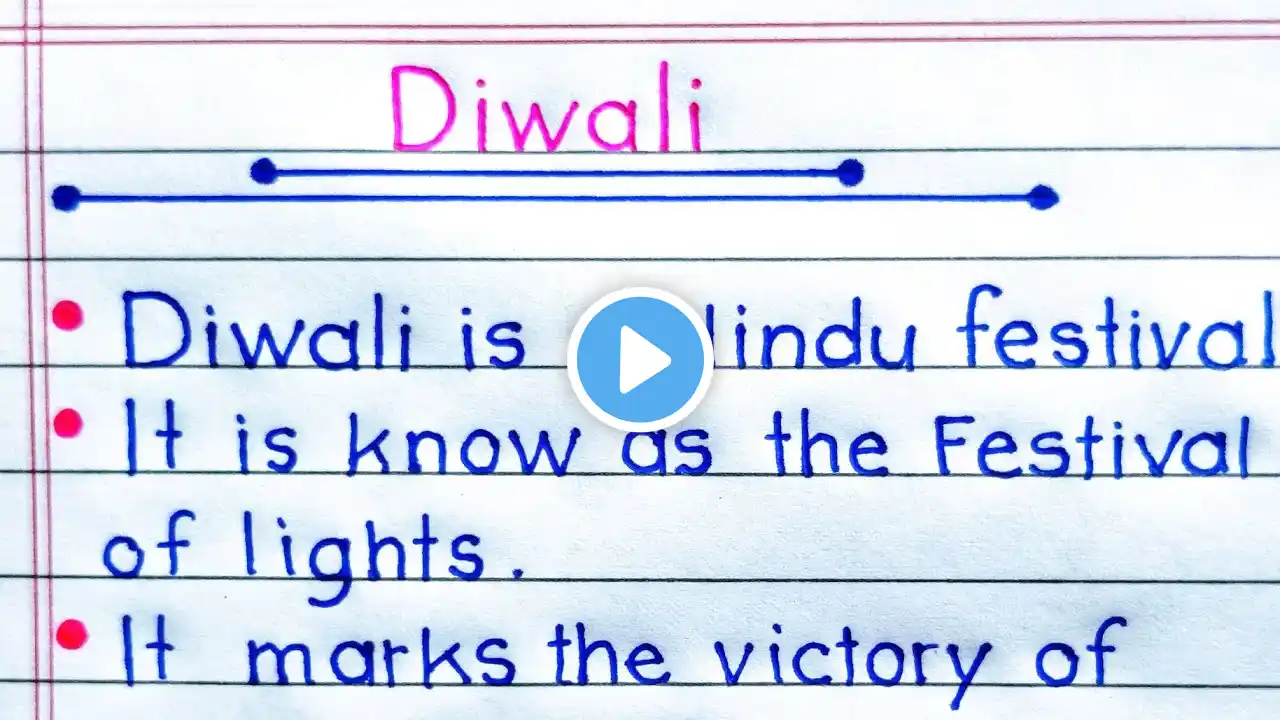 Diwali
• Diwali is indu festival
• It is know as the Festival
of lights.
• It marks the victory of